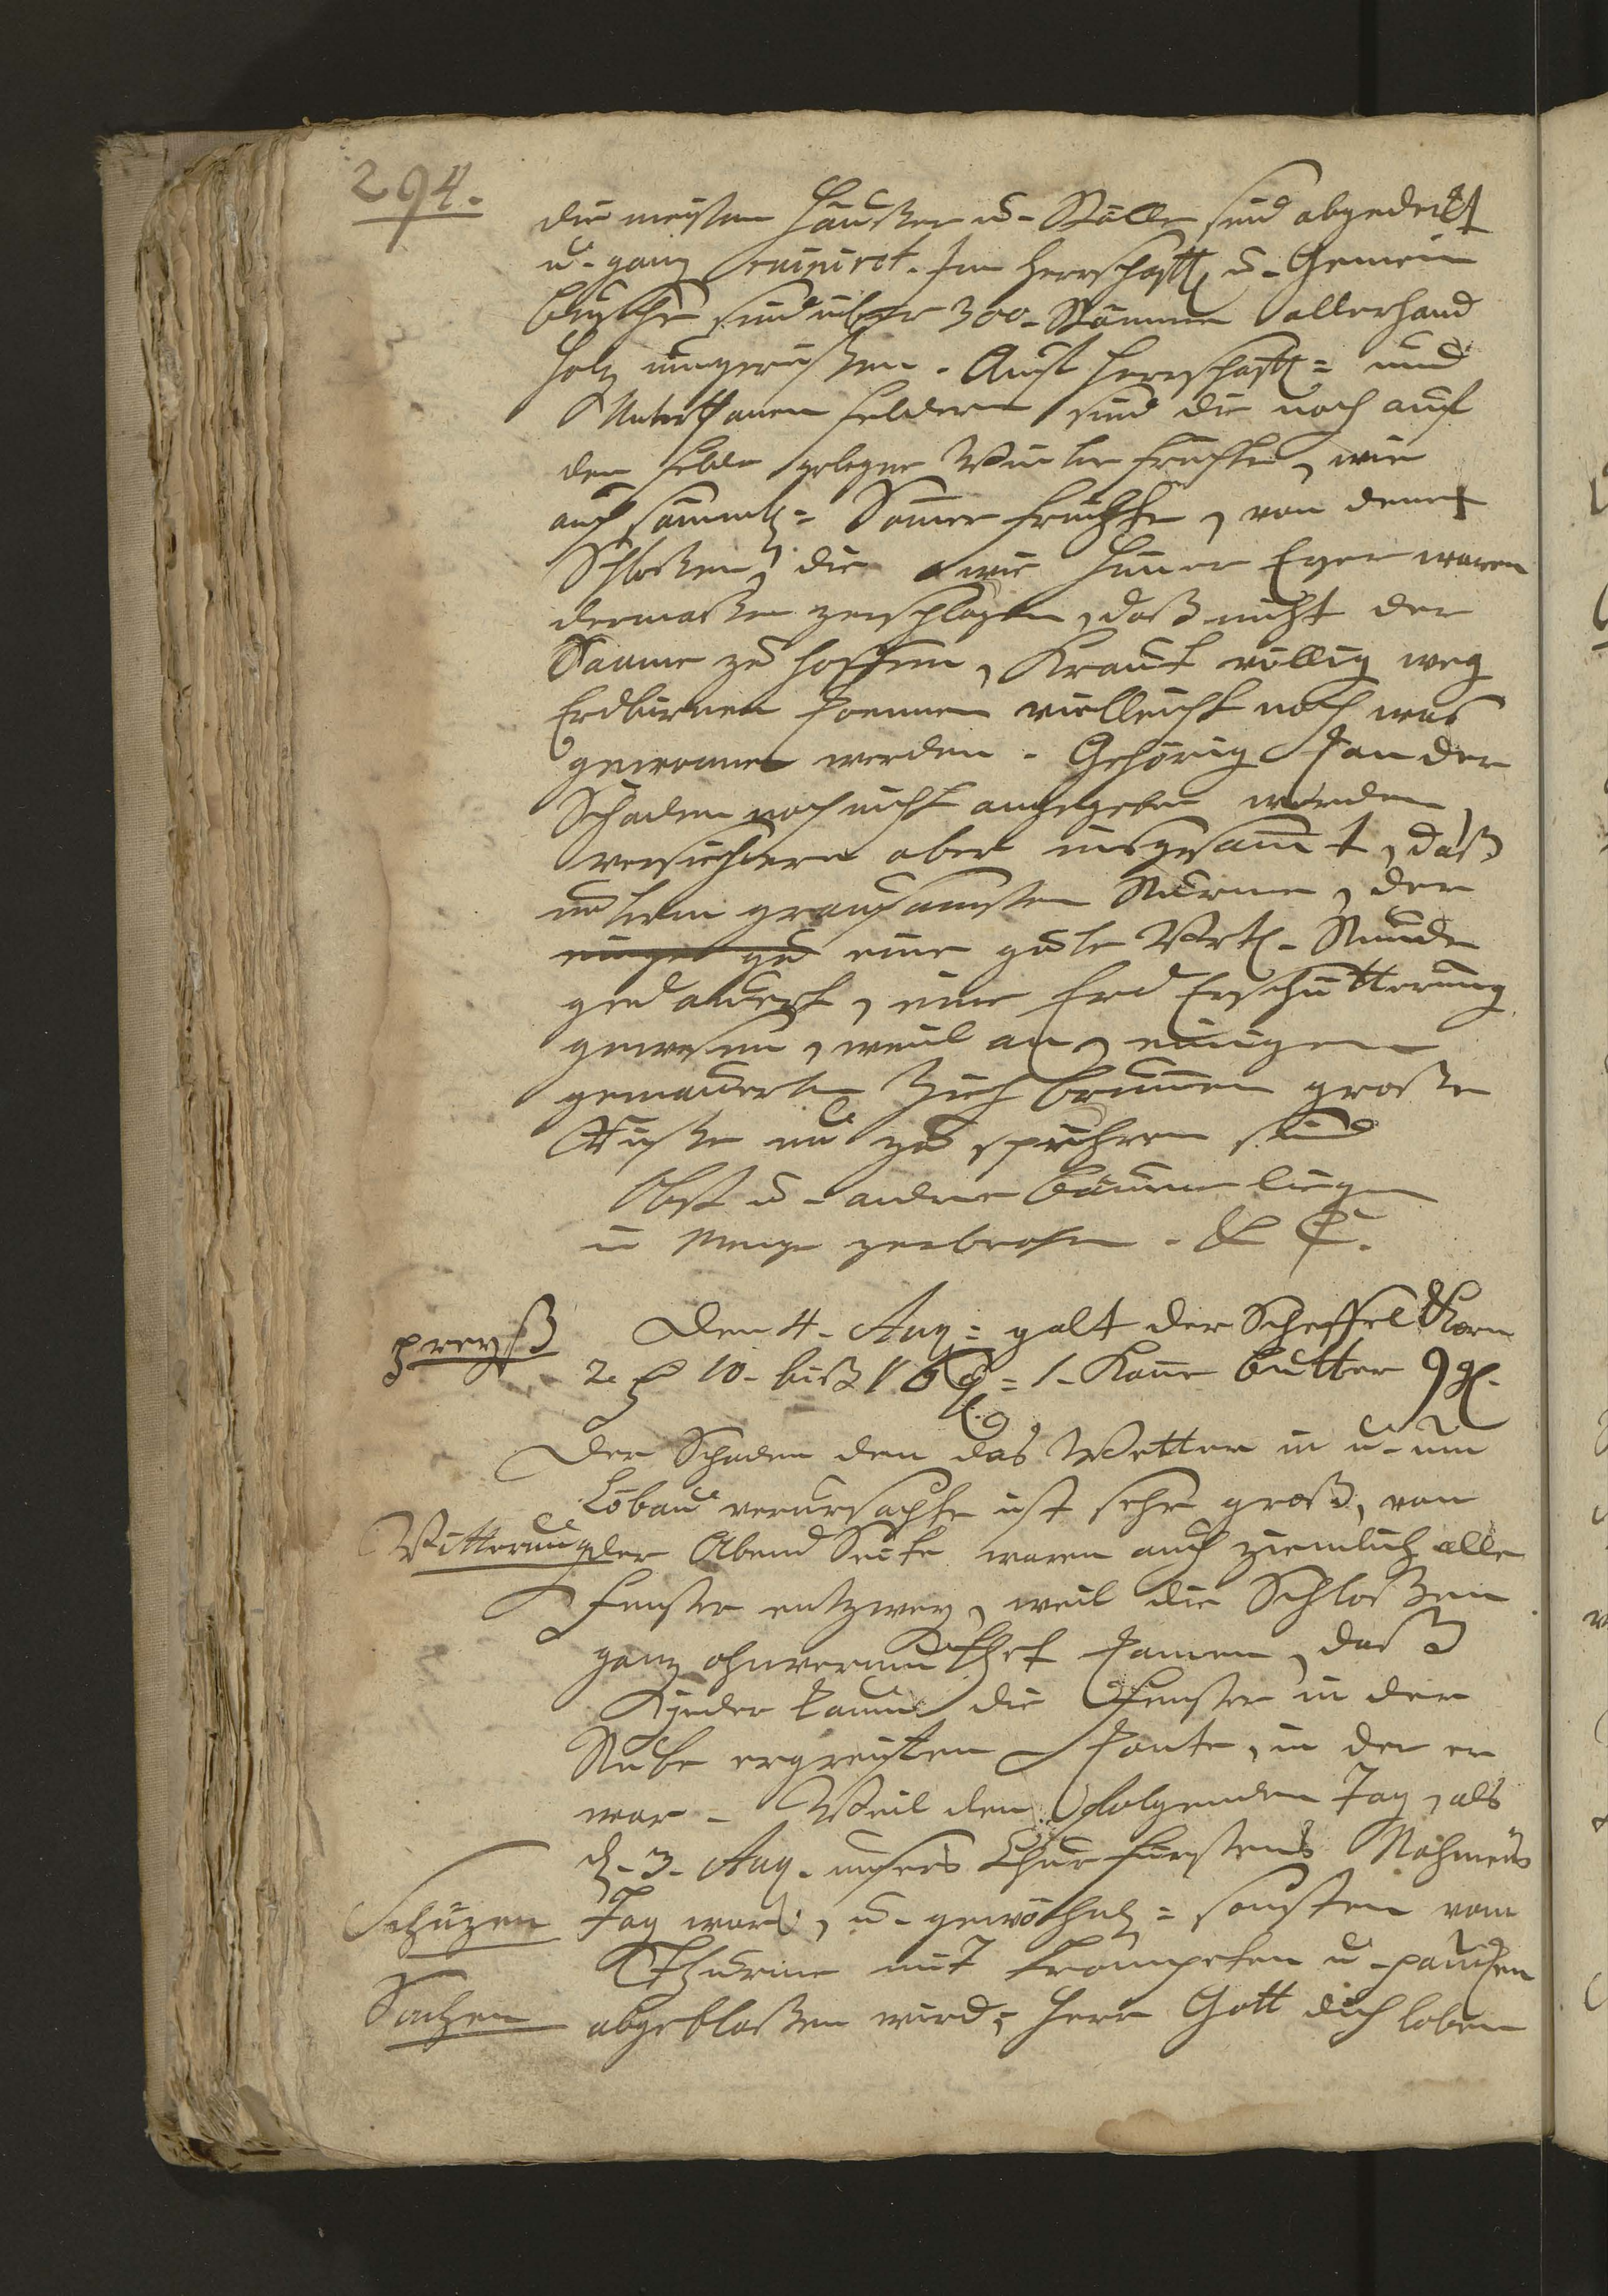 294.
die meisten Häußer u- Ställe sind abgedeckt
u- ganz ruinirt. Im Herrschaftl u- Gemein
büsche sind über 300- Stämme allerhand
Holz umgerißen. Auf herrschaftl= und
Unterthanen Feldern sind die noch auf
dem Felde gelegne Winter früchte, wie
auch sämmtl= Somer früchte, von denen
Schloßen, die wie Hüner Eyer waren
dermaßen zerschlagen, daß nicht der
Saame zu hoffen, Kraut völlig weg
Erdbirnen koennen vielleicht noch was
gewonnen werden. Gehörig kan der
Schaden noch nicht angegeben werden,
versichern aber insgesamt, daß
unterm grausamsten Sturme, der
eine gute Vrtl- Stunde
gedauert, eine Erd Erschütterung
gewesen, weil an einigen
gemauerten Zieh brunnen große
Riße zu spühren sind
Obst u- andere bäume liegen
in Menge zerbrochen.
preyß
Den 4- Aug= galt der Scheffel Korn
2. 10- biß 16 = 1- Kanne butter 9 gl.
Der Schaden den das Wetter in u- um
Löbau verursachte ist sehr groß, von
Witterung der Abend Seite waren auch ziemlich alle
Fenster entzwey, weil die Schloßen
ganz ohnvermuthet kamen, daß
jeder kaum die Fenster in der
Stube ergreiffen konte, in der er
war - Weil den folgenden Tag, als
d- 3- Aug- unsers Churfürstens Nahmens
Schüzen Tag war, u- gewöhnl= sonsten vom
Thurme mit trompeten u- paucken
Sachen abgeblaßen wird, = Herr Gott dich loben